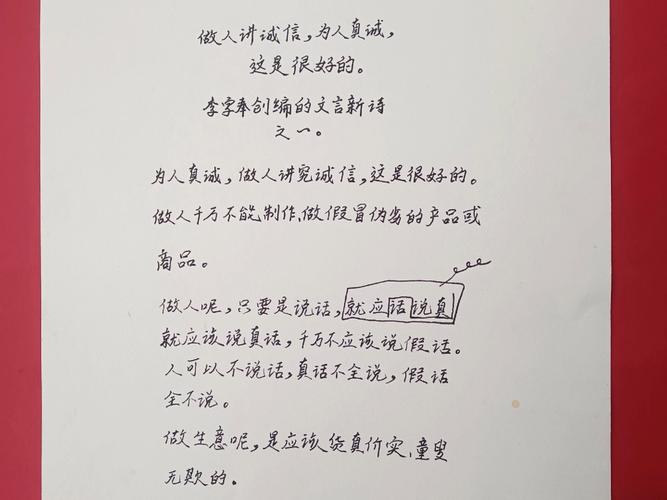 做人讲诚信，为人真诚，
这是很好的。
李字奉创编的文言新诗
之一。
为人真诚，做人讲究诚信，这是很好的。
做人千万不能制作、做假冒伪劣的产品或
商品。
做人呢，只要是说话，就应话说真
就应该说真话，千万不应该说假话。
人可以不说话，真话不全说，假话
全不说。
做生意呢，是应该货真价实、童叟
无欺的。